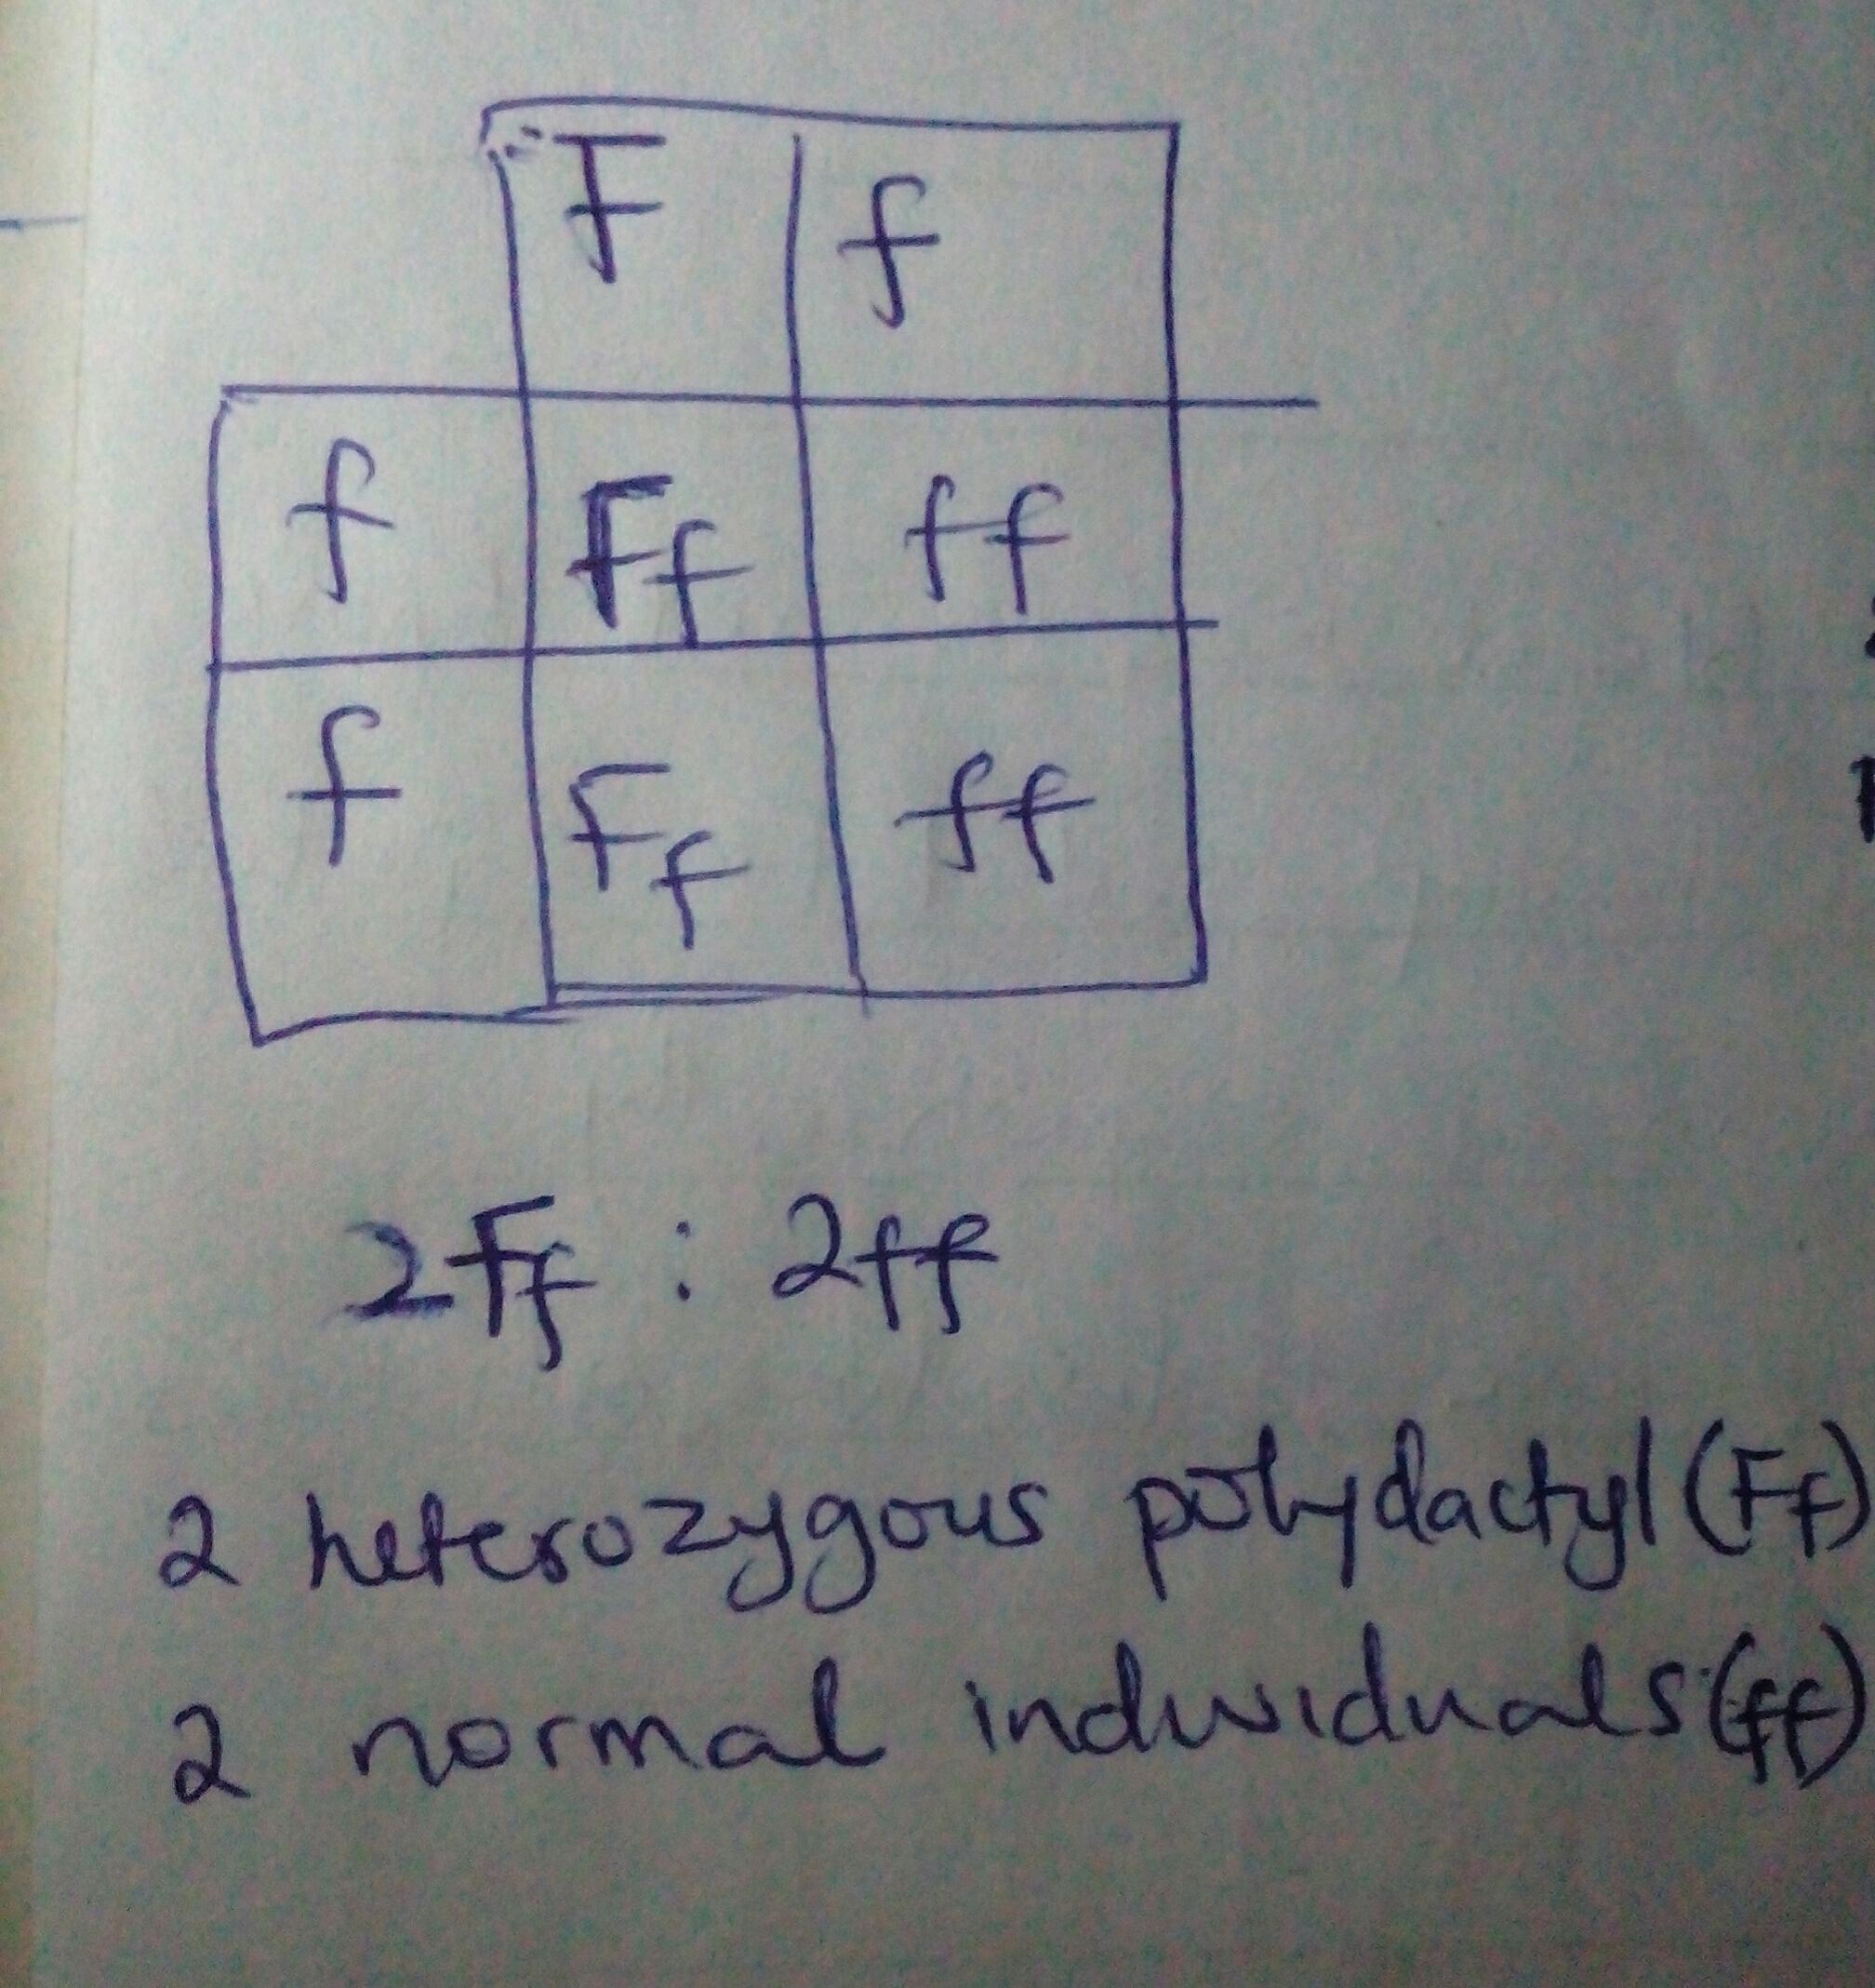 F f
f Ff ff
f Ff ff
2Ff : 2ff
2 heterozygous polydactyl (Ff)
2 normal individuals (ff)